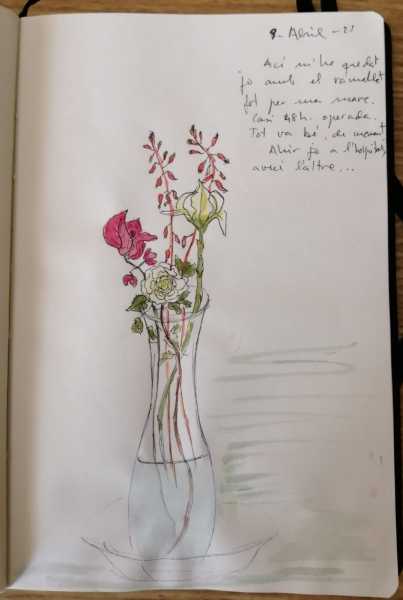 8 - Abril - 21
Ací m'he quedat
jo amb el ramellet
fet per ma mare.
Casi 48h. operada.
Tot va bé, de moment
Ahir jo a l'hospital,
avui l'altre...